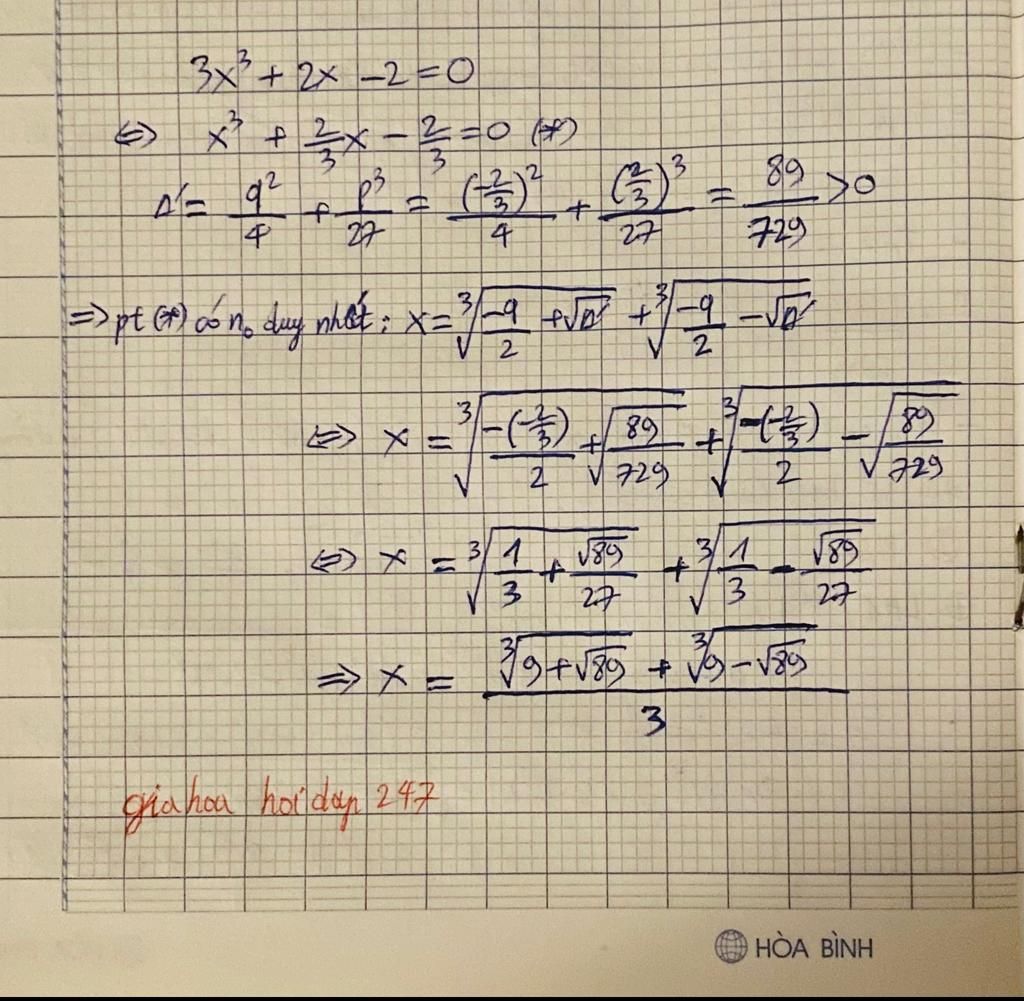 3x³ + 2x - 2 = 0
⇔ x³ + 2/3 x - 2/3 = 0 (*)
Δ' = q²/4 + p³/27 = (-2/3)²/4 + (2/3)³/27 = 89/729 > 0
⇒ pt (*) có n₀ duy nhất: x = ∛(-q/2 + √Δ') + ∛(-q/2 - √Δ')
⇔ x = ∛(-(-2/3)/2 + √(89/729)) + ∛(-(-2/3)/2 - √(89/729))
⇔ x = ∛(1/3 + √89/27) + ∛(1/3 - √89/27)
⇒ x = (∛(9+√89) + ∛(9-√89))/3
gia hoa hoi dap 247
HÒA BÌNH